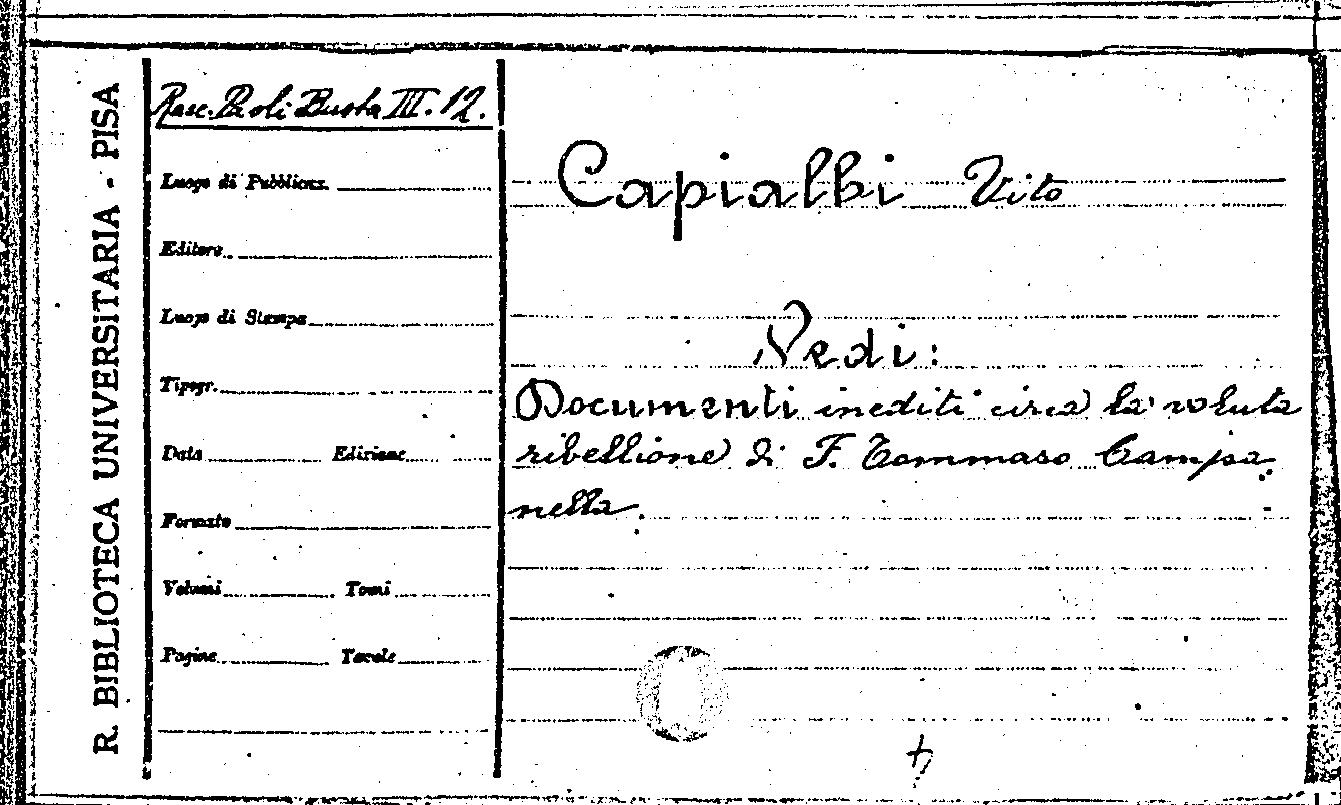 R. BIBLIOTECA UNIVERSITARIA - PISA
Racc. Paoli Busta III. 12.
Luogo di Pubblicaz.
Editore
Luogo di Stampa
Tipogr.
Data Edizione
Formato
Volumi Tomi
Pagine Tavole
Capialbi Vito
Vedi:
Documenti inediti circa la voluta
ribellione di F. Tommaso Campa
nella.